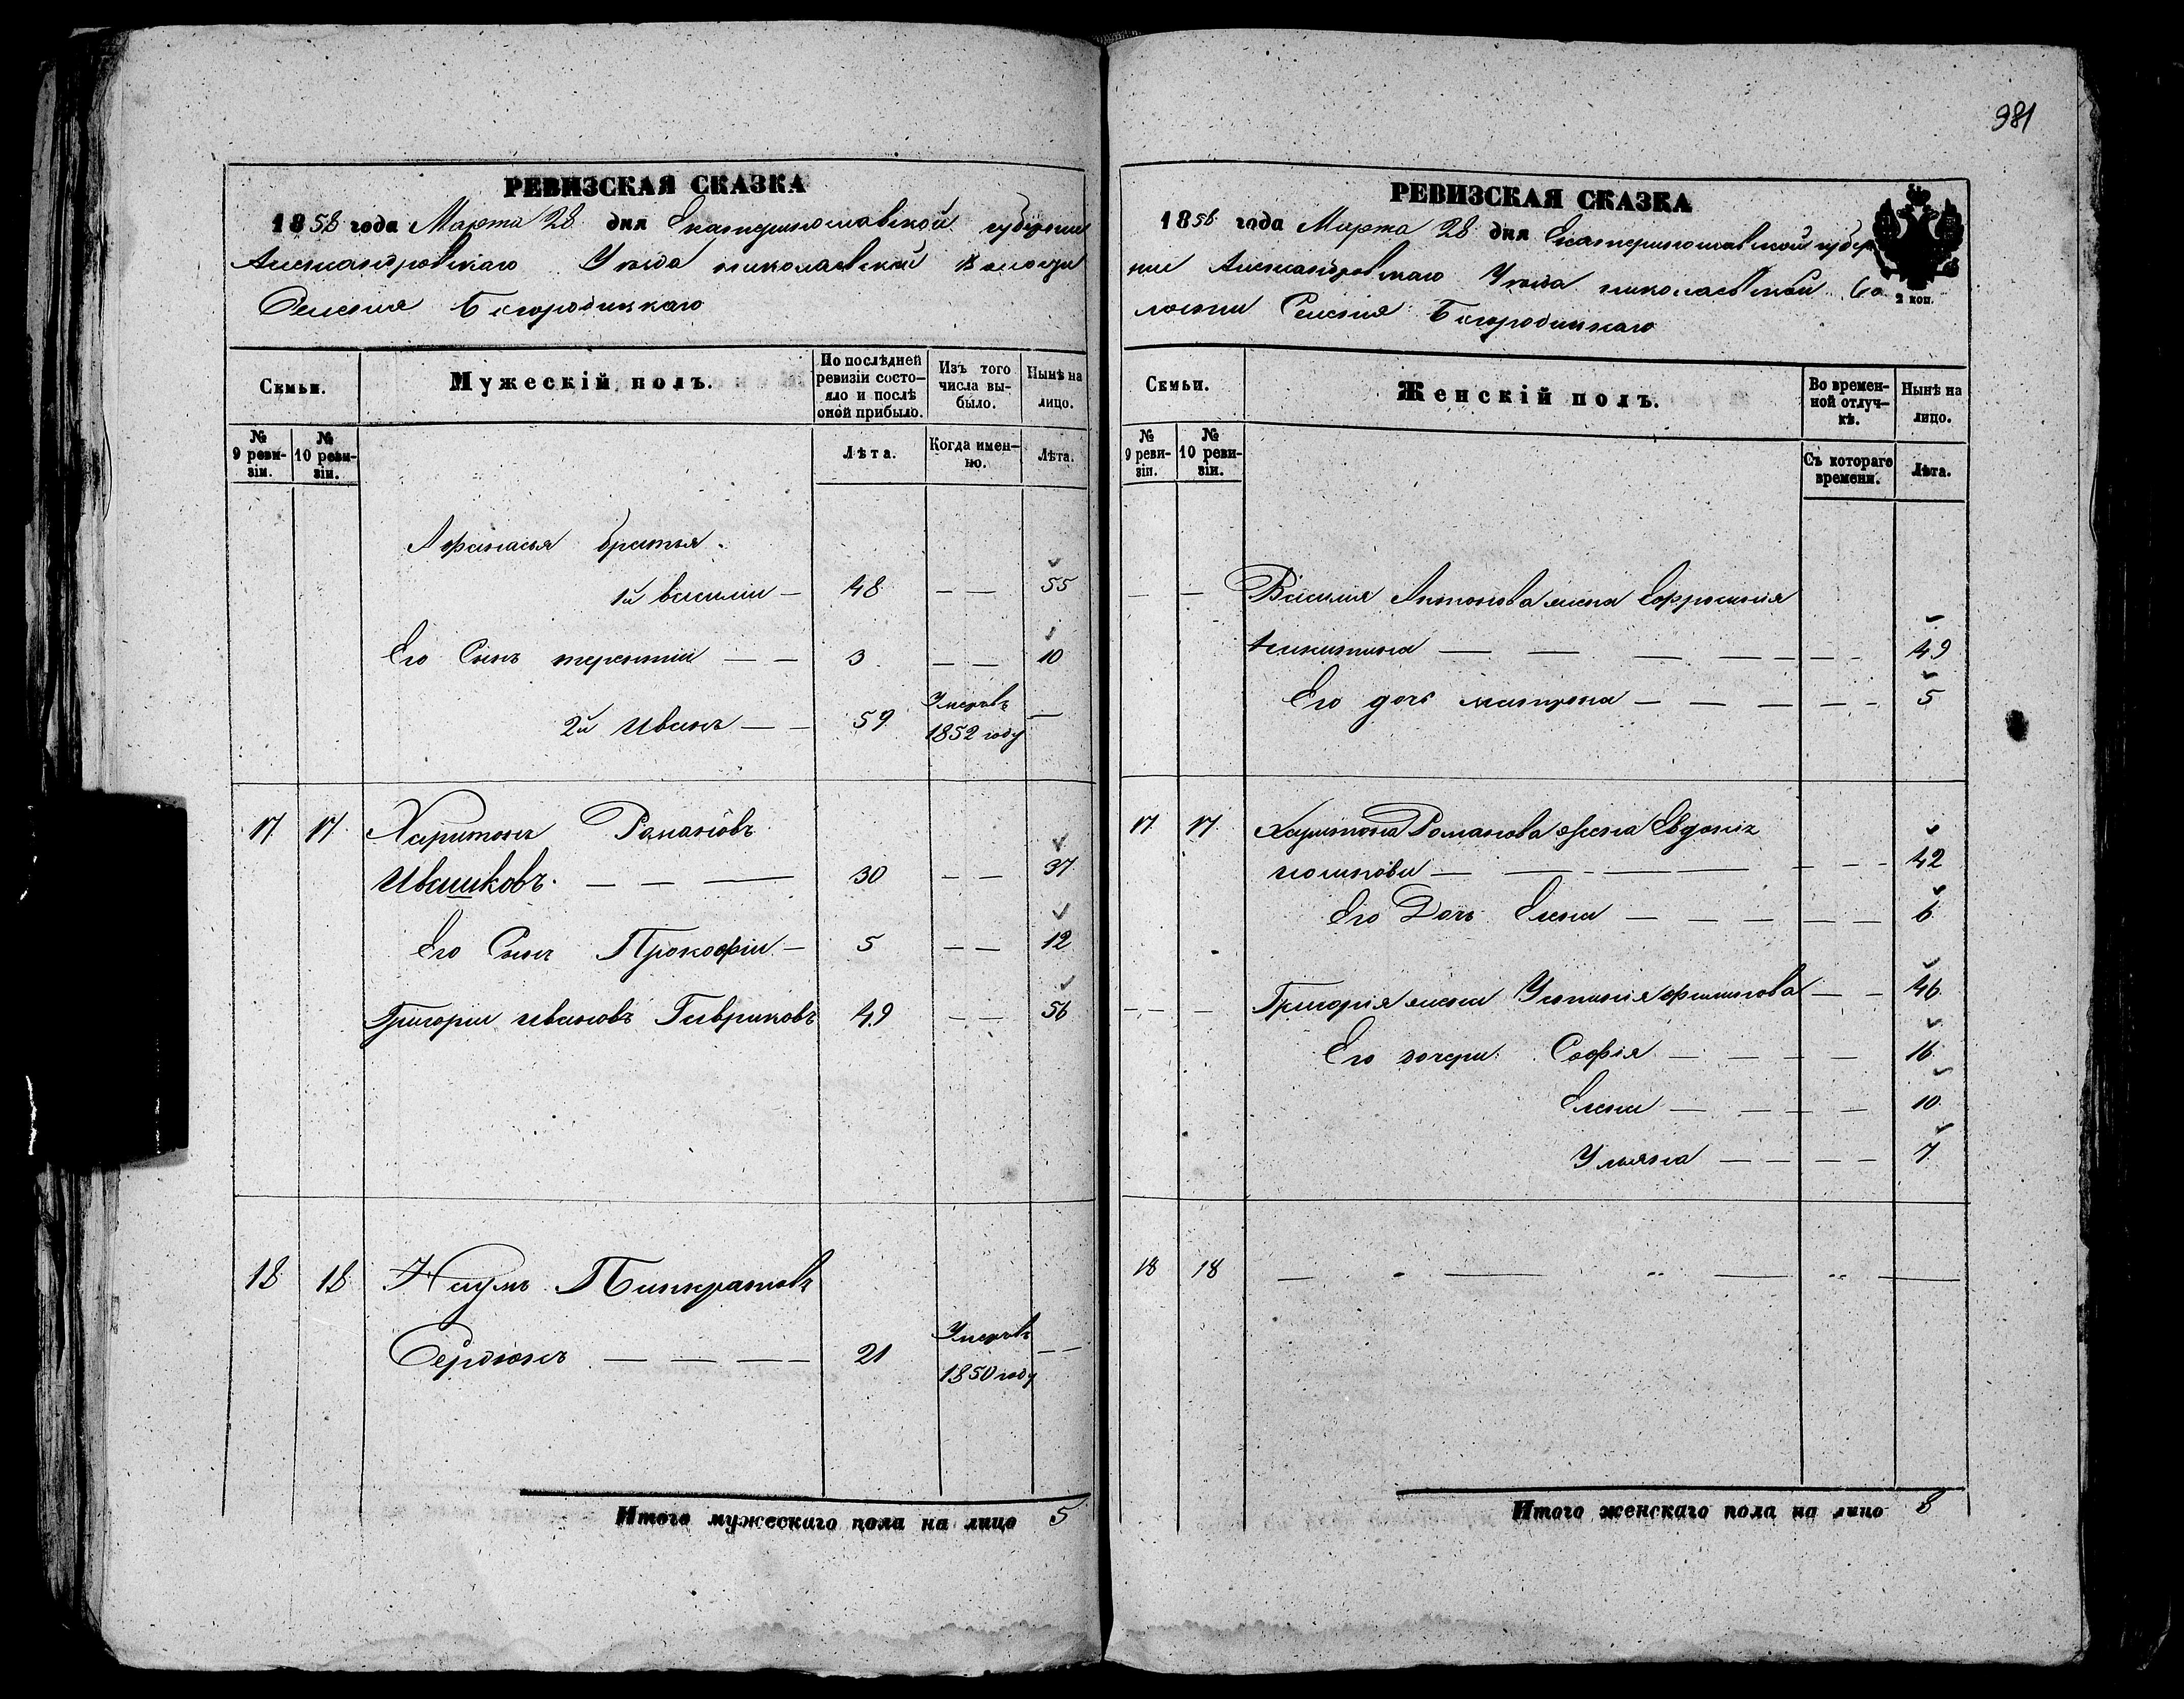 981
РЕВИЗСКАЯ СКАЗКА
1858 года Марта 28 дня Екатеринославской губернии
Александровскаго Уезда николаевской Волости
Селения Богородицкаго
Семьи.
Мужескій полъ.
По послѣдней ревизіи состо-
яло и послѣ оной прибыло.
Изъ того числа вы-
было.
Нынѣ на лицо.
№ 9 реви-
зіи.
№ 10 реви-
зіи.
Лѣта.
Когда имен-
но.
Лѣта.
Афанасья братья.
1й василии — 48 — — 55
Его Сынъ терентии — — 3 — — 10
2й Иванъ — — 59 Умеръ 1852 году —
17 17 Харитонъ Романовъ
Ивашковъ. — — — 30 — — 37
Его Сынъ Прокофіи — 5 — — 12
Григории ивановъ Гавриковъ 49 — — 56
18 18 Наумъ Панкратовъ
Сердюкъ — — — — 21 Умеръ 1850 году — —
Итого мужескаго пола на лицо 5
РЕВИЗСКАЯ СКАЗКА
1858 года Марта 28 дня Екатеринославской губер
нии Александровскаго Уезда николаевской Во
лости Селения Богородицкаго
2 коп.
Семьи.
Женскій полъ.
Во времен-
ной отлуч-
кѣ.
Нынѣ на лицо.
№ 9 реви-
зіи.
№ 10 реви-
зіи.
Съ котораго времени.
Лѣта.
— — Василия Антонова жена Ефросиния
никитина — — — — — — — 49
Его дочь матрона — — — — — 5
17 17 Харитона Романова жена Евдокия
— — — — — — 42
Его Дочь Елена — — — — — 6
— — — Григория жена филипова — — 46
Его дочери Софія — — — — 16
Елена — — — — 10
Ульяна — — — — 7
18 18 — — — —
Итого женскаго пола на лицо 8